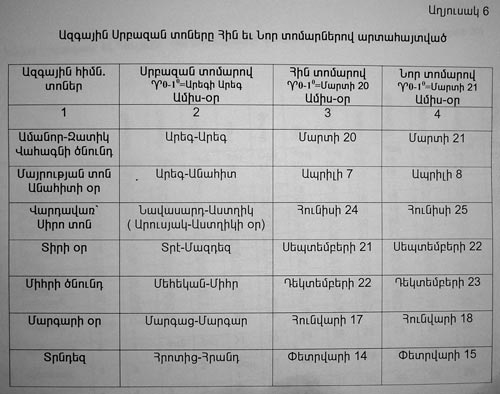 Աղյուսակ 6
Ազգային Սրբազան տոները Հին եւ Նոր տոմարներով արտահայտված
Ազգային հիմն. տոներ
Սրբազան տոմարով
=Արեգի Արեգ
Ամիս-օր
Հին տոմարով
=Մարտի 20
Ամիս-օր
Նոր տոմարով
=Մարտի 21
Ամիս-օր
1 2 3 4
Ամանոր-Զատիկ
Վահագնի ծնունդ
Արեգ-Արեգ
Մարտի 20
Մարտի 21
Մայրության տոն
Անահիտի օր
Արեգ-Անահիտ
Ապրիլի 7
Ապրիլի 8
Վարդավառ՝
Սիրո տոն
Նավասարդ-Աստղիկ
( Արուսյակ-Աստղիկի օր)
Հունիսի 24
Հունիսի 25
Տիրի օր
Տրէ-Մազդեզ
Սեպտեմբերի 21
Սեպտեմբերի 22
Միհրի ծնունդ
Մեհեկան-Միհր
Դեկտեմբերի 22
Դեկտեմբերի 23
Մարգարի օր
Մարգաց-Մարգար
Հունվարի 17
Հունվարի 18
Տրնդեզ
Հրոտից-Հրանդ
Փետրվարի 14
Փետրվարի 15